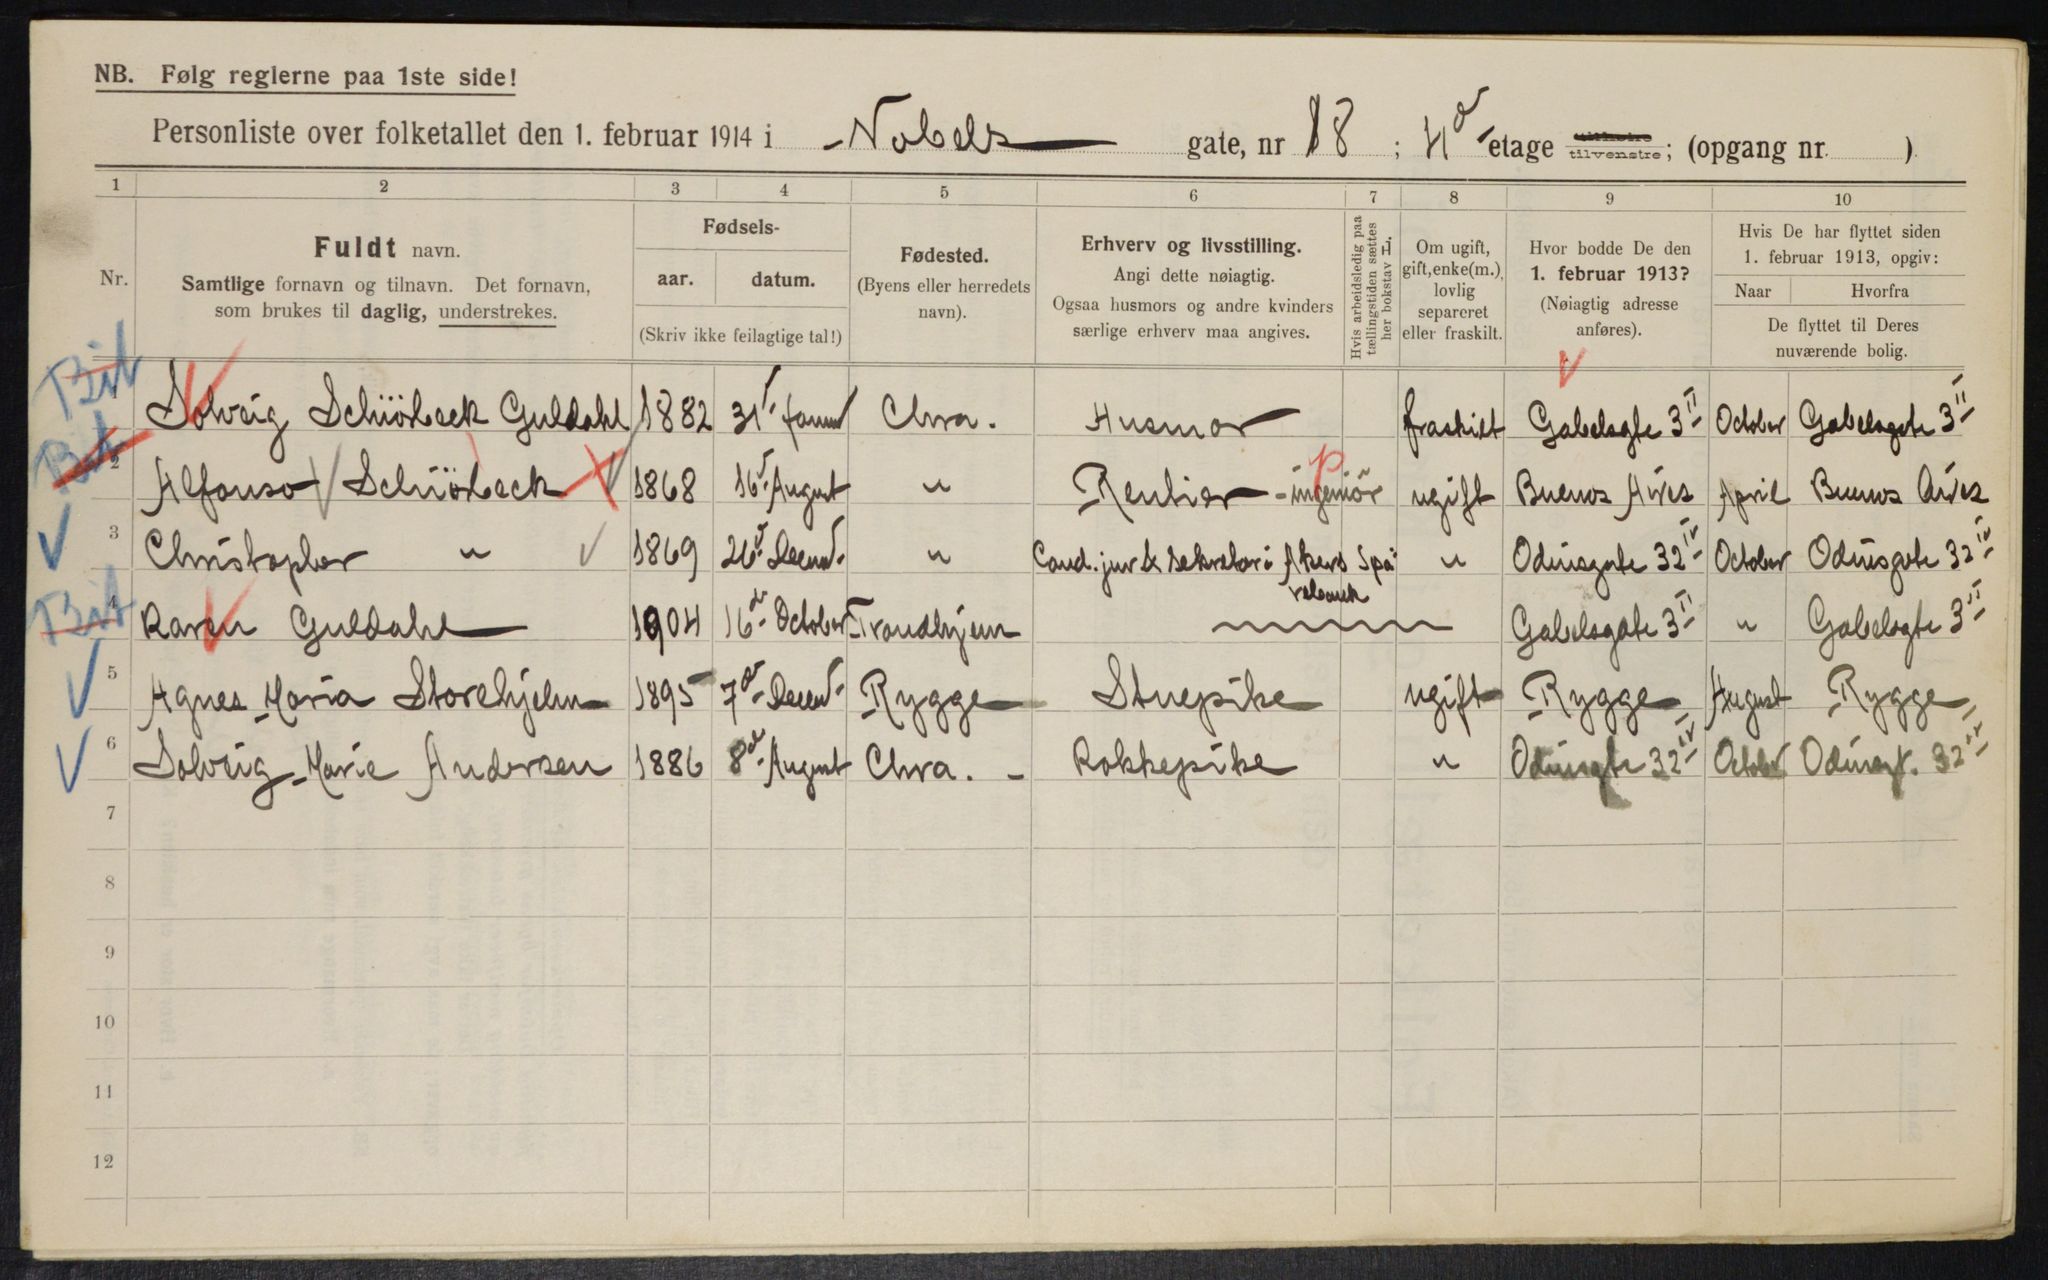 NB. Følg reglerne paa 1ste side!
Personliste over folketallet den 1. februar 1914 i Nobels gate, nr 18 ; 4 etage tilhøire tilvenstre; (opgang nr. )
1 2 3 4 5 6 7 8 9 10
Nr.
Fuldt navn.
Samtlige fornavn og tilnavn. Det fornavn,
som brukes til daglig, understrekes.
Fødsels-
aar. datum.
(Skriv ikke feilagtige tal!)
Fødested.
(Byens eller herredets
navn).
Erhverv og livsstilling.
Angi dette nøiagtig.
Ogsaa husmors og andre kvinders
særlige erhverv maa angives.
Hvis arbeidsledig paa
tællingstiden sættes
her bokstav L.
Om ugift,
gift, enke(m.),
lovlig
separeret
eller fraskilt.
Hvor bodde De den
1. februar 1913?
(Nøiagtig adresse
anføres).
Hvis De har flyttet siden
1. februar 1913, opgiv:
Naar Hvorfra
De flyttet til Deres
nuværende bolig.
Solveig Schiöbeck Guldahl 1882 31 Chra. Husmor fraskilt Gabelsgte 3 II October Gabelsgate 3 II
2 Alfonso Schiöbeck 1868 16 August " Rentier - ingeniör ugift Buenos Aires April Buenos Aires
3 Christopher " 1869 26 " Cand. jur & sekretær i Akers Spa " Odinsgate 32 IV October Odinsgate 32 IV
rebank
4 Karen Guldahl 1904 16 October Trondhjem Gabelsgate 3 II " Gabelsgte 3 II
5 Agnes Maria Storehjelm 1895 7 Rygge Stuepike ugift Rygge August Rygge
6 Solveig Marie Andersen 1886 8 August Chra. Kokkepike " Odinsgte 32 IV October Odinsgt. 32 IV
7
8
9
10
11
12